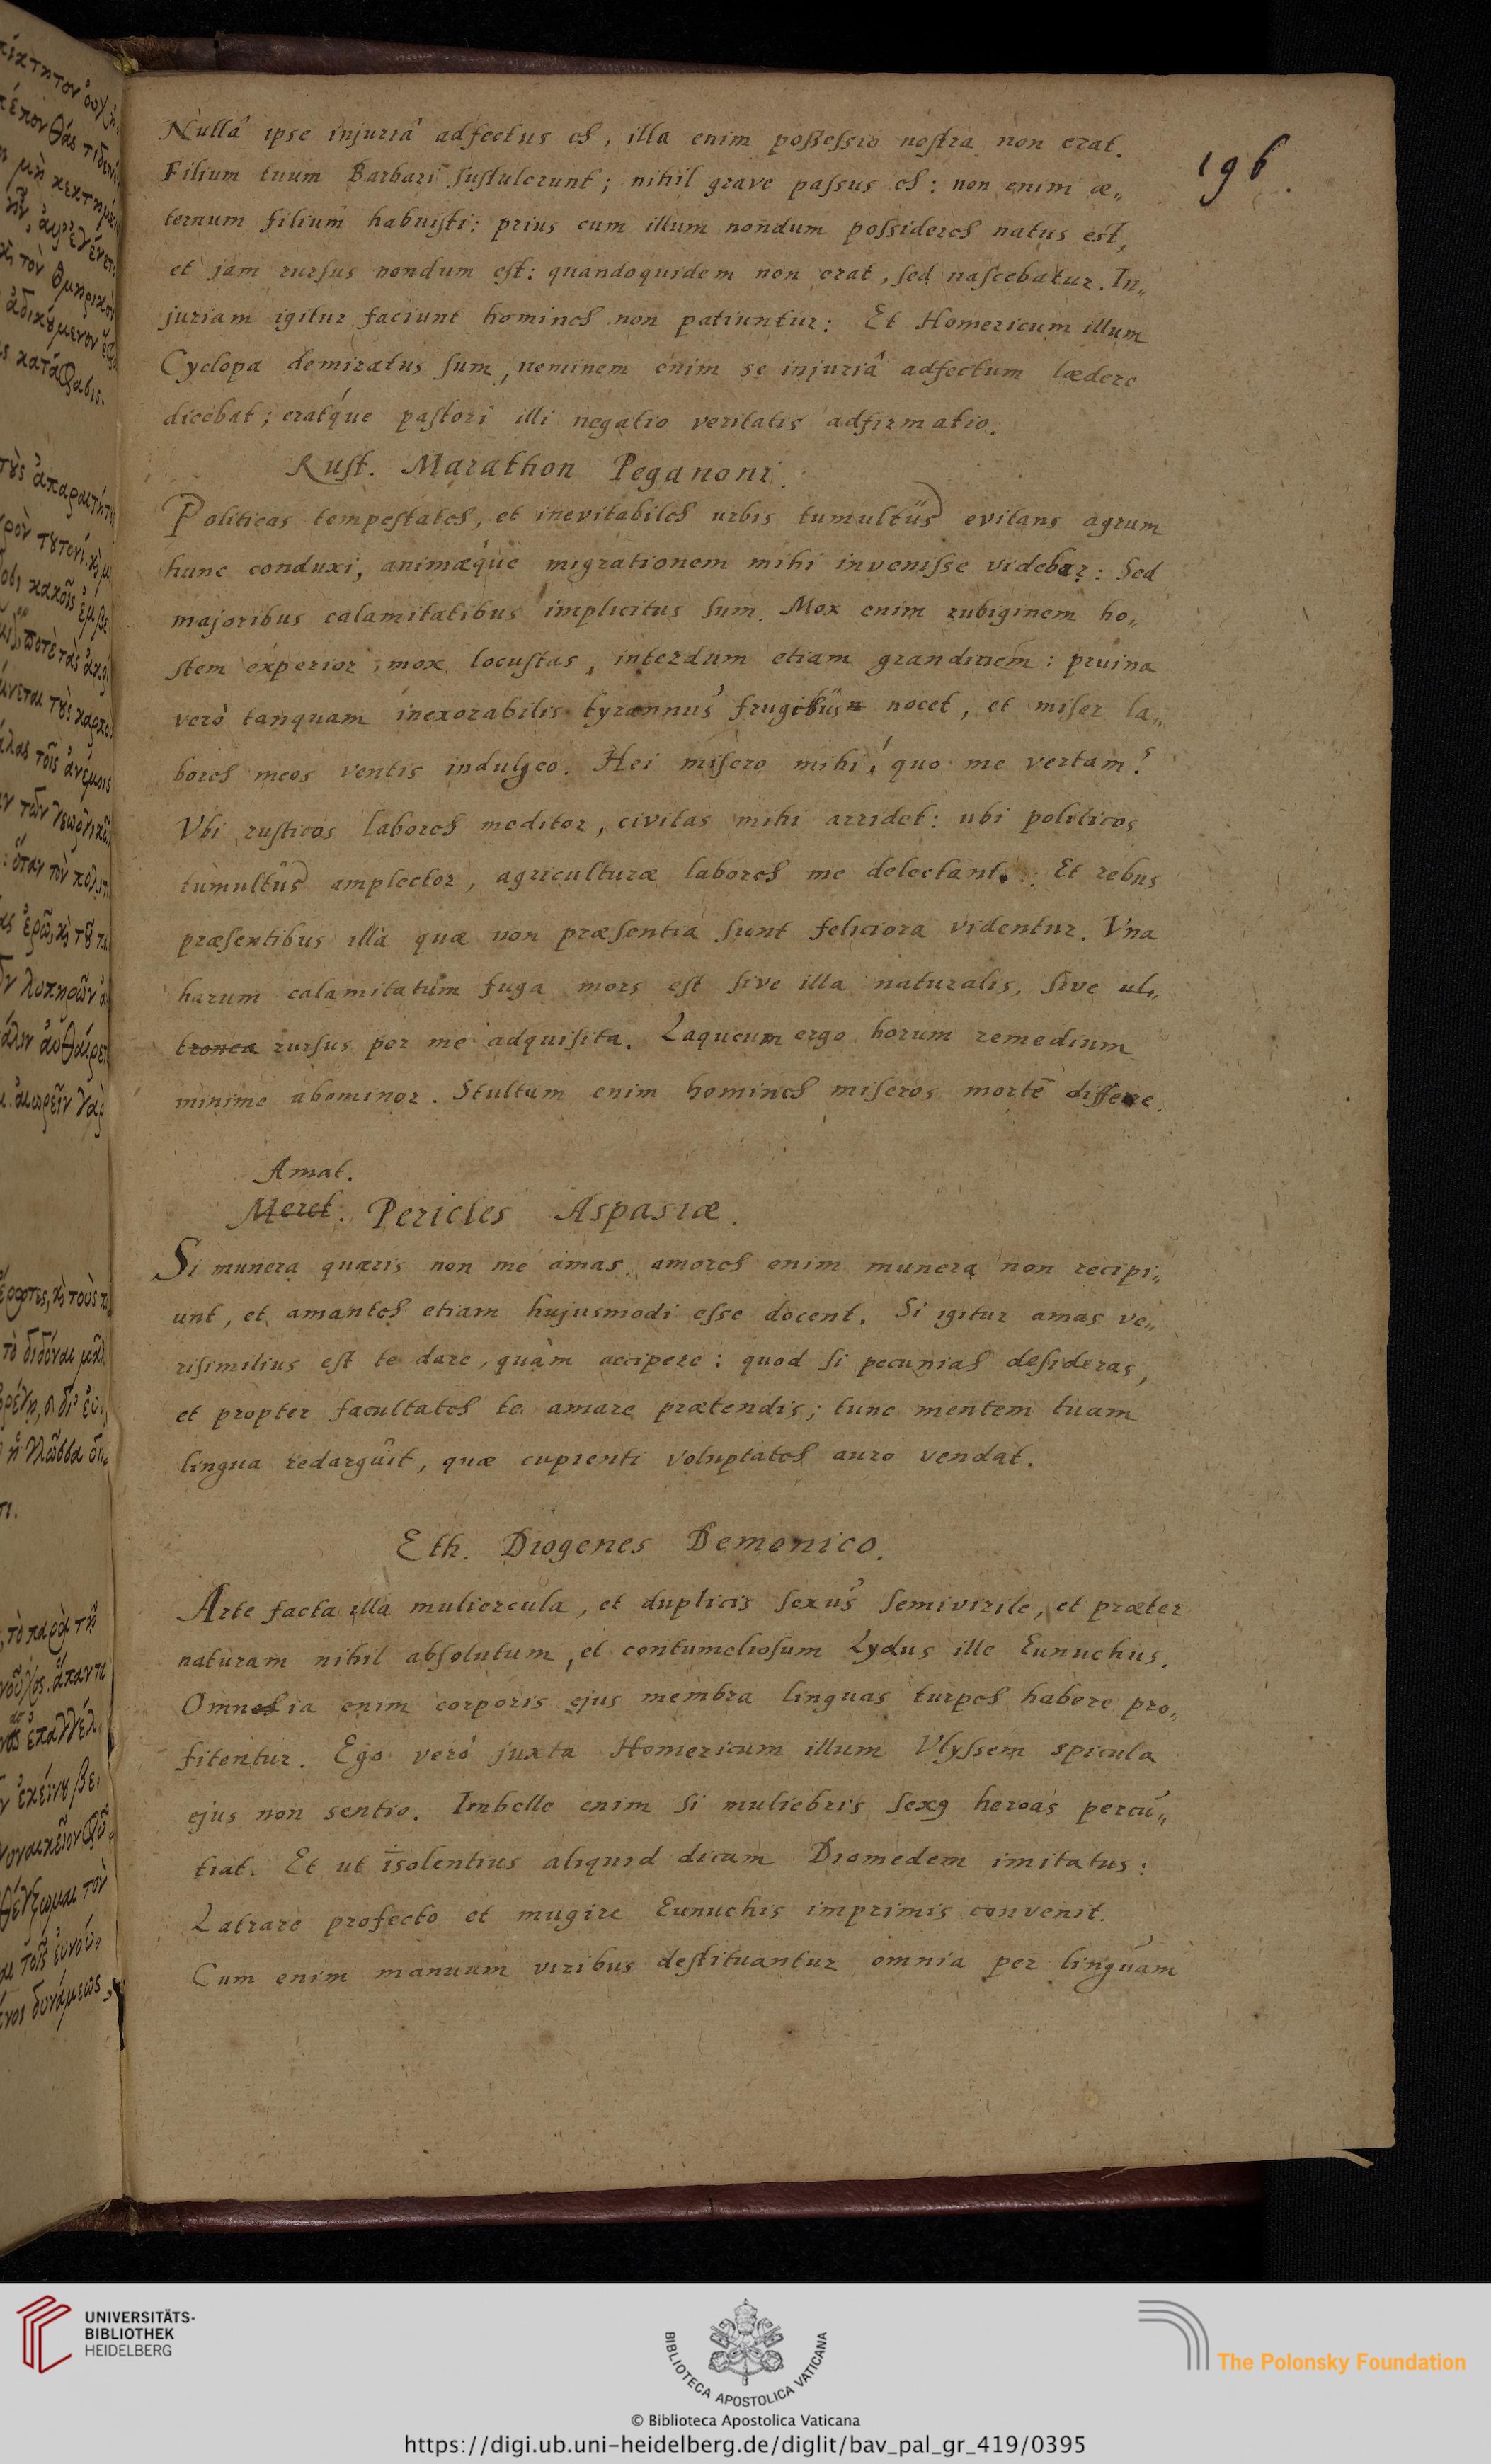 Nullâ ipse injuriâ adfectus es, illa enim possessio nostra non erat.
196.
Filium tuum Barbari sustulerunt; nihil grave passus es: non enim æ„
ternum filium habuisti: prius cum illum nondum possideres natus est,
et jam rursus nondum est: quandoquidem non erat, sed nascebatur. In„
juriam igitur faciunt homines non patiuntur: Et Homericum illum
Cyclopa demiratus sum, neminem enim se injuriâ adfectum lædere
dicebat; eratque pastori illi negatio veritatis adfirmatio.
Rust. Marathon Peganoni.
Politicas tempestates, et inevitabiles urbis tumultus evitans agrum
hunc conduxi, animæque migrationem mihi invenisse videbar: Sed
majoribus calamitatibus implicitus sum. Mox enim rubiginem ho„
stem experior, mox locustas, interdum etiam grandinem: pruina
verò tanquam inexorabilis tyrannus frugibus nocet, et miser la„
bores meos ventis indulgeo. Hei misero mihi, quo me vertam?
Vbi rusticos labores meditor, civitas mihi arridet: ubi politicos
tumultûs amplector, agriculturæ labores me delectant. Et rebus
præsentibus illa quæ non præsentia sunt feliciora videntur. Vna
harum calamitatum fuga mors est sive illa naturalis, sive ul„
tronea rursus per me adquisita. Laqueum ergo horum remedium
minime abominor. Stultum enim homines miseros mortē differre.
Amat.
Meret. Pericles Aspasiæ.
Si munera quæris non me amas amores enim munera non recipi„
unt, et amantes etiam hujusmodi esse docent. Si igitur amas ve„
risimilius est te dare, quàm accipere: quod si pecunias desideras,
et propter facultates te amare prætendis; tunc mentem tuam
lingua redarguit, quæ cupienti voluptates auro vendat.
Eth. Diogenes Demonico.
Arte facta illa muliercula, et duplicis sexus semivirile, et præter
naturam nihil absolutum, et contumeliosum Lydus ille Eunuchus.
Omnia enim corporis ejus membra linguas turpes habere pro„
fitentur. Ego verò juxta Homericum illum Vlyssem spicula
ejus non sentio. Imbelle enim si muliebris sexꝯ heroas percu„
tiat. Et ut īsolentius aliquid dicam Diomedem imitatus:
Latrare profecto et mugire Eunuchis imprimis convenit.
Cum enim manuum viribus destituantur omnia per linguam
UNIVERSITÄTS-
BIBLIOTHEK
HEIDELBERG
BIBLIOTECA APOSTOLICA VATICANA
The Polonsky Foundation
© Biblioteca Apostolica Vaticana
https://digi.ub.uni-heidelberg.de/diglit/bav_pal_gr_419/0395